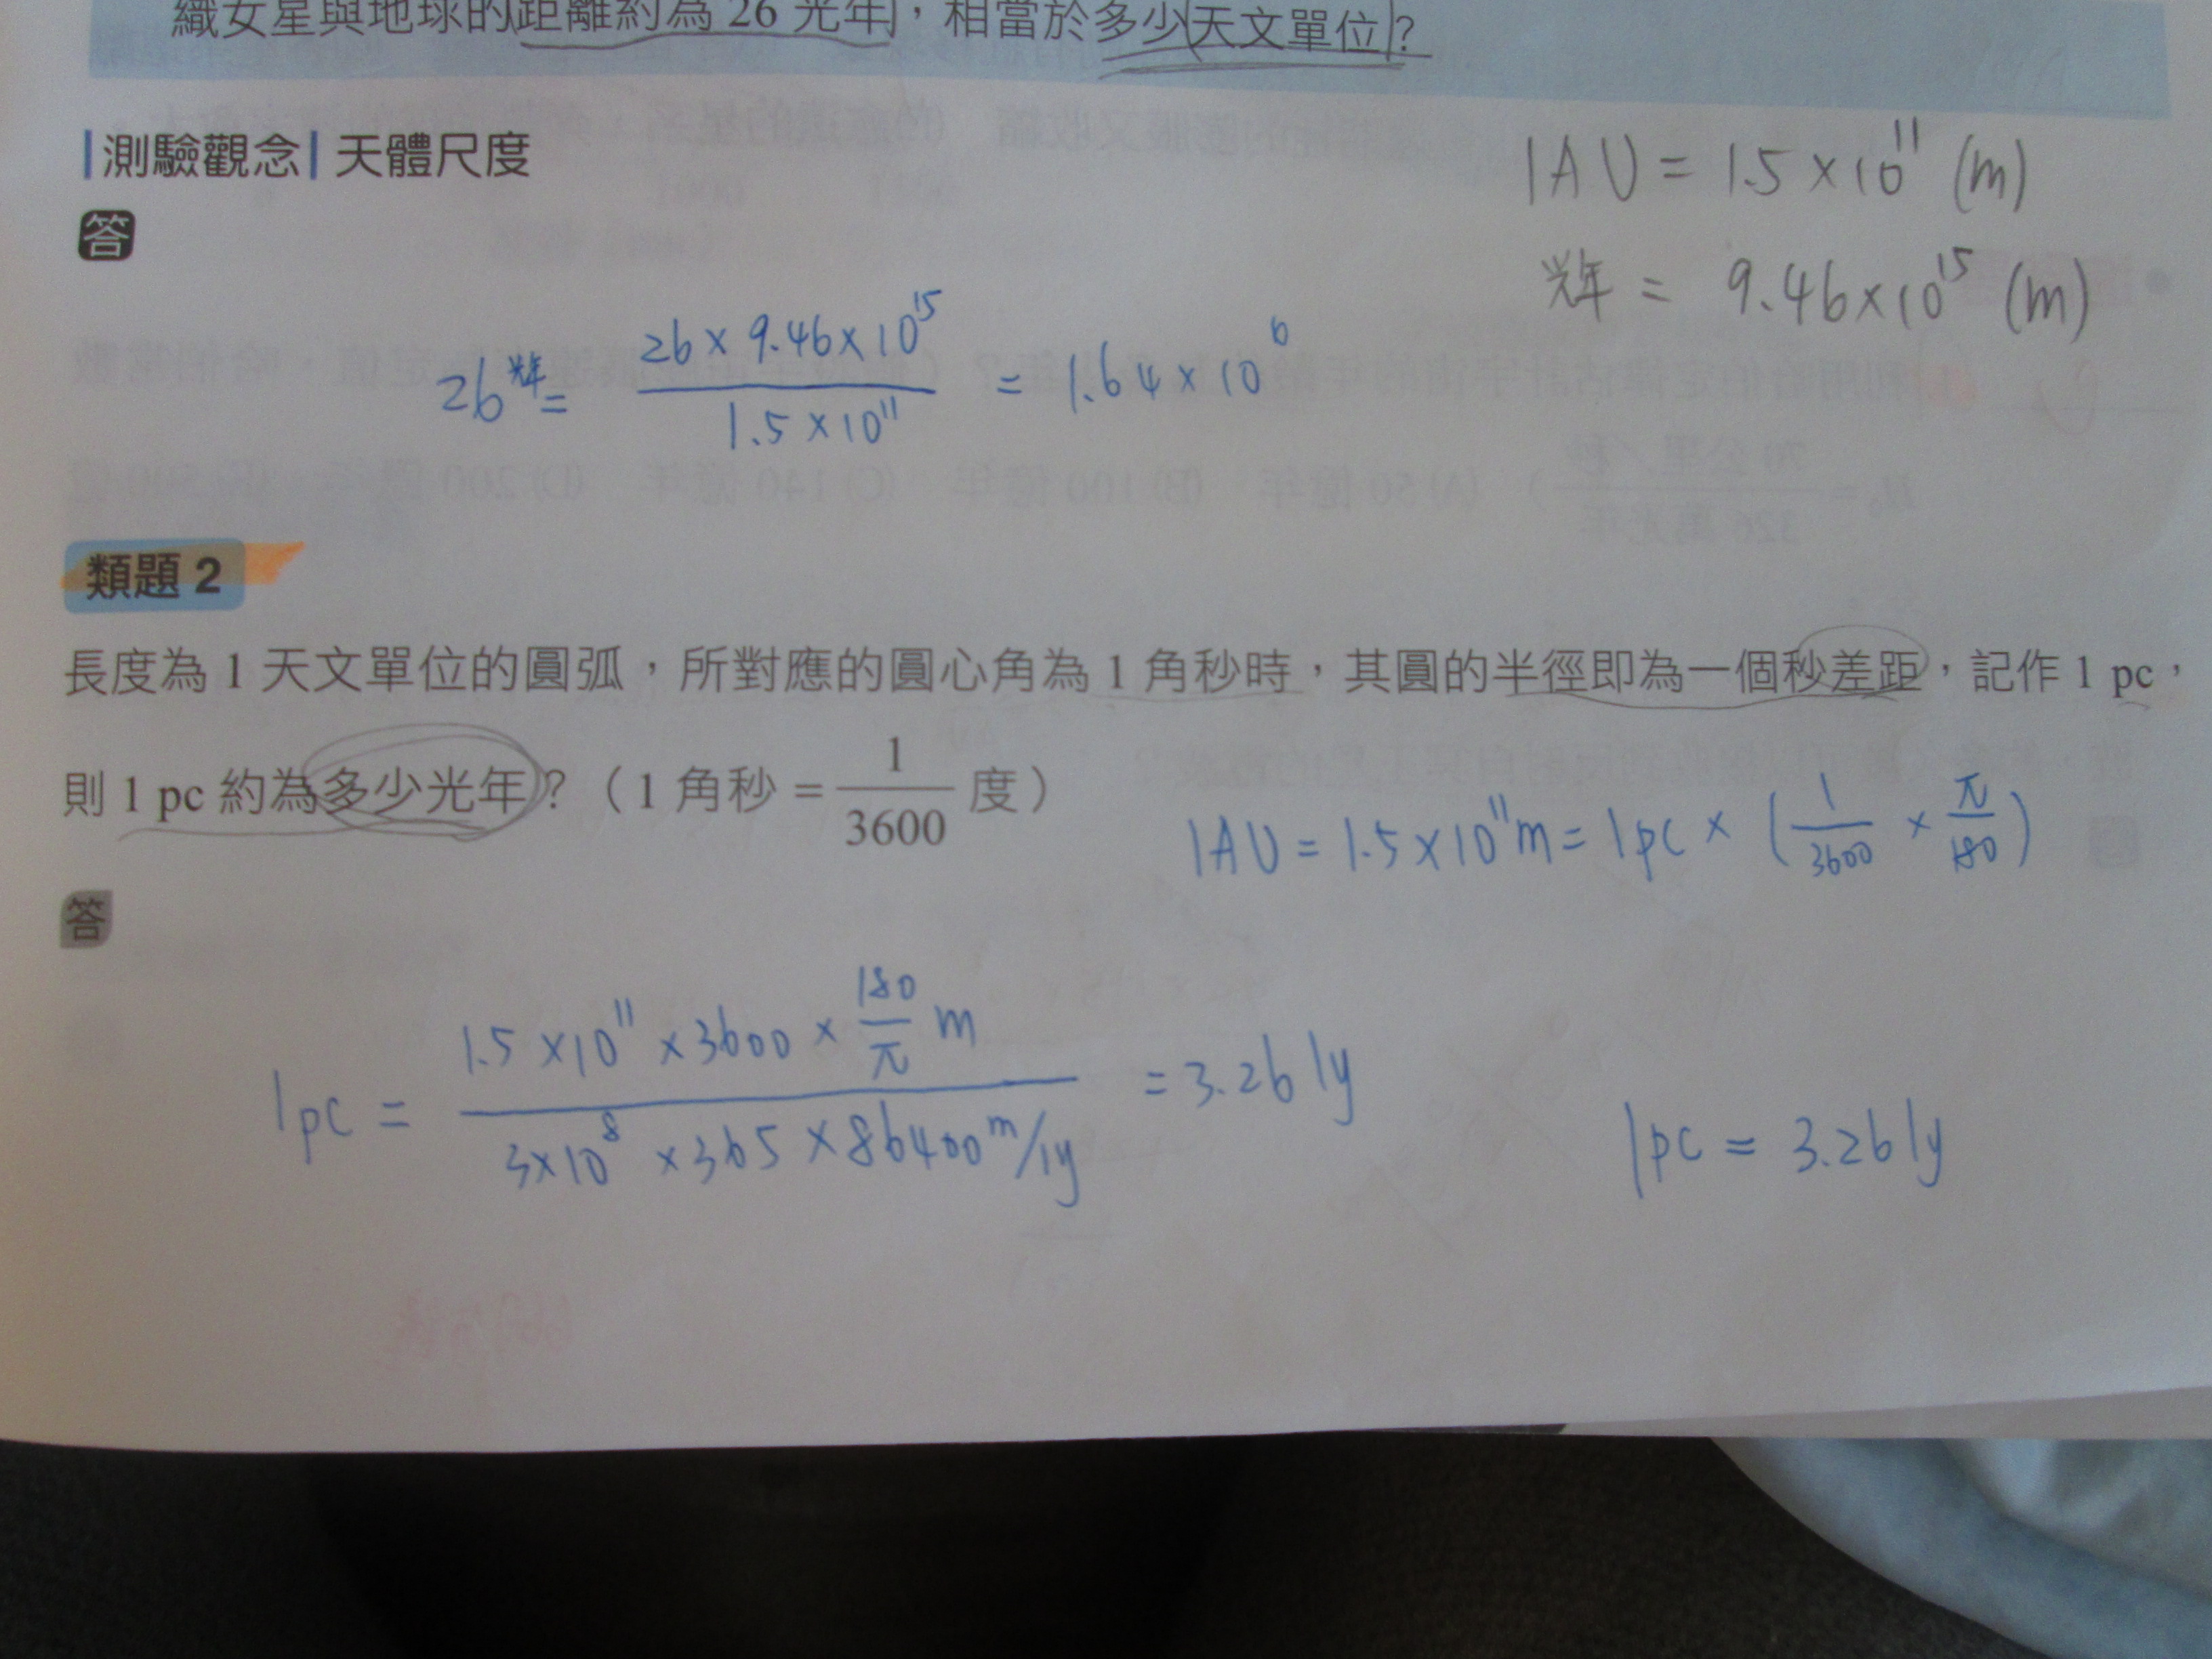 織女星與地球的距離約為 26 光年，相當於多少天文單位？
測驗觀念 天體尺度
1AU = 1.5×10¹¹ (m)
答
光年 = 9.46×10¹⁵ (m)
26光年 = 26×9.46×10¹⁵ / 1.5×10¹¹ = 1.64×10⁶
類題 2
長度為 1 天文單位的圓弧，所對應的圓心角為 1 角秒時，其圓的半徑即為一個秒差距，記作 1 pc，
則 1 pc 約為多少光年？（1 角秒 = 1/3600 度）
1AU = 1.5×10¹¹m = 1pc × (1/3600 × π/180)
答
1pc = 1.5×10¹¹×3600×180/π m / 3×10⁸×365×86400 m/ly = 3.26 ly
1pc = 3.26 ly